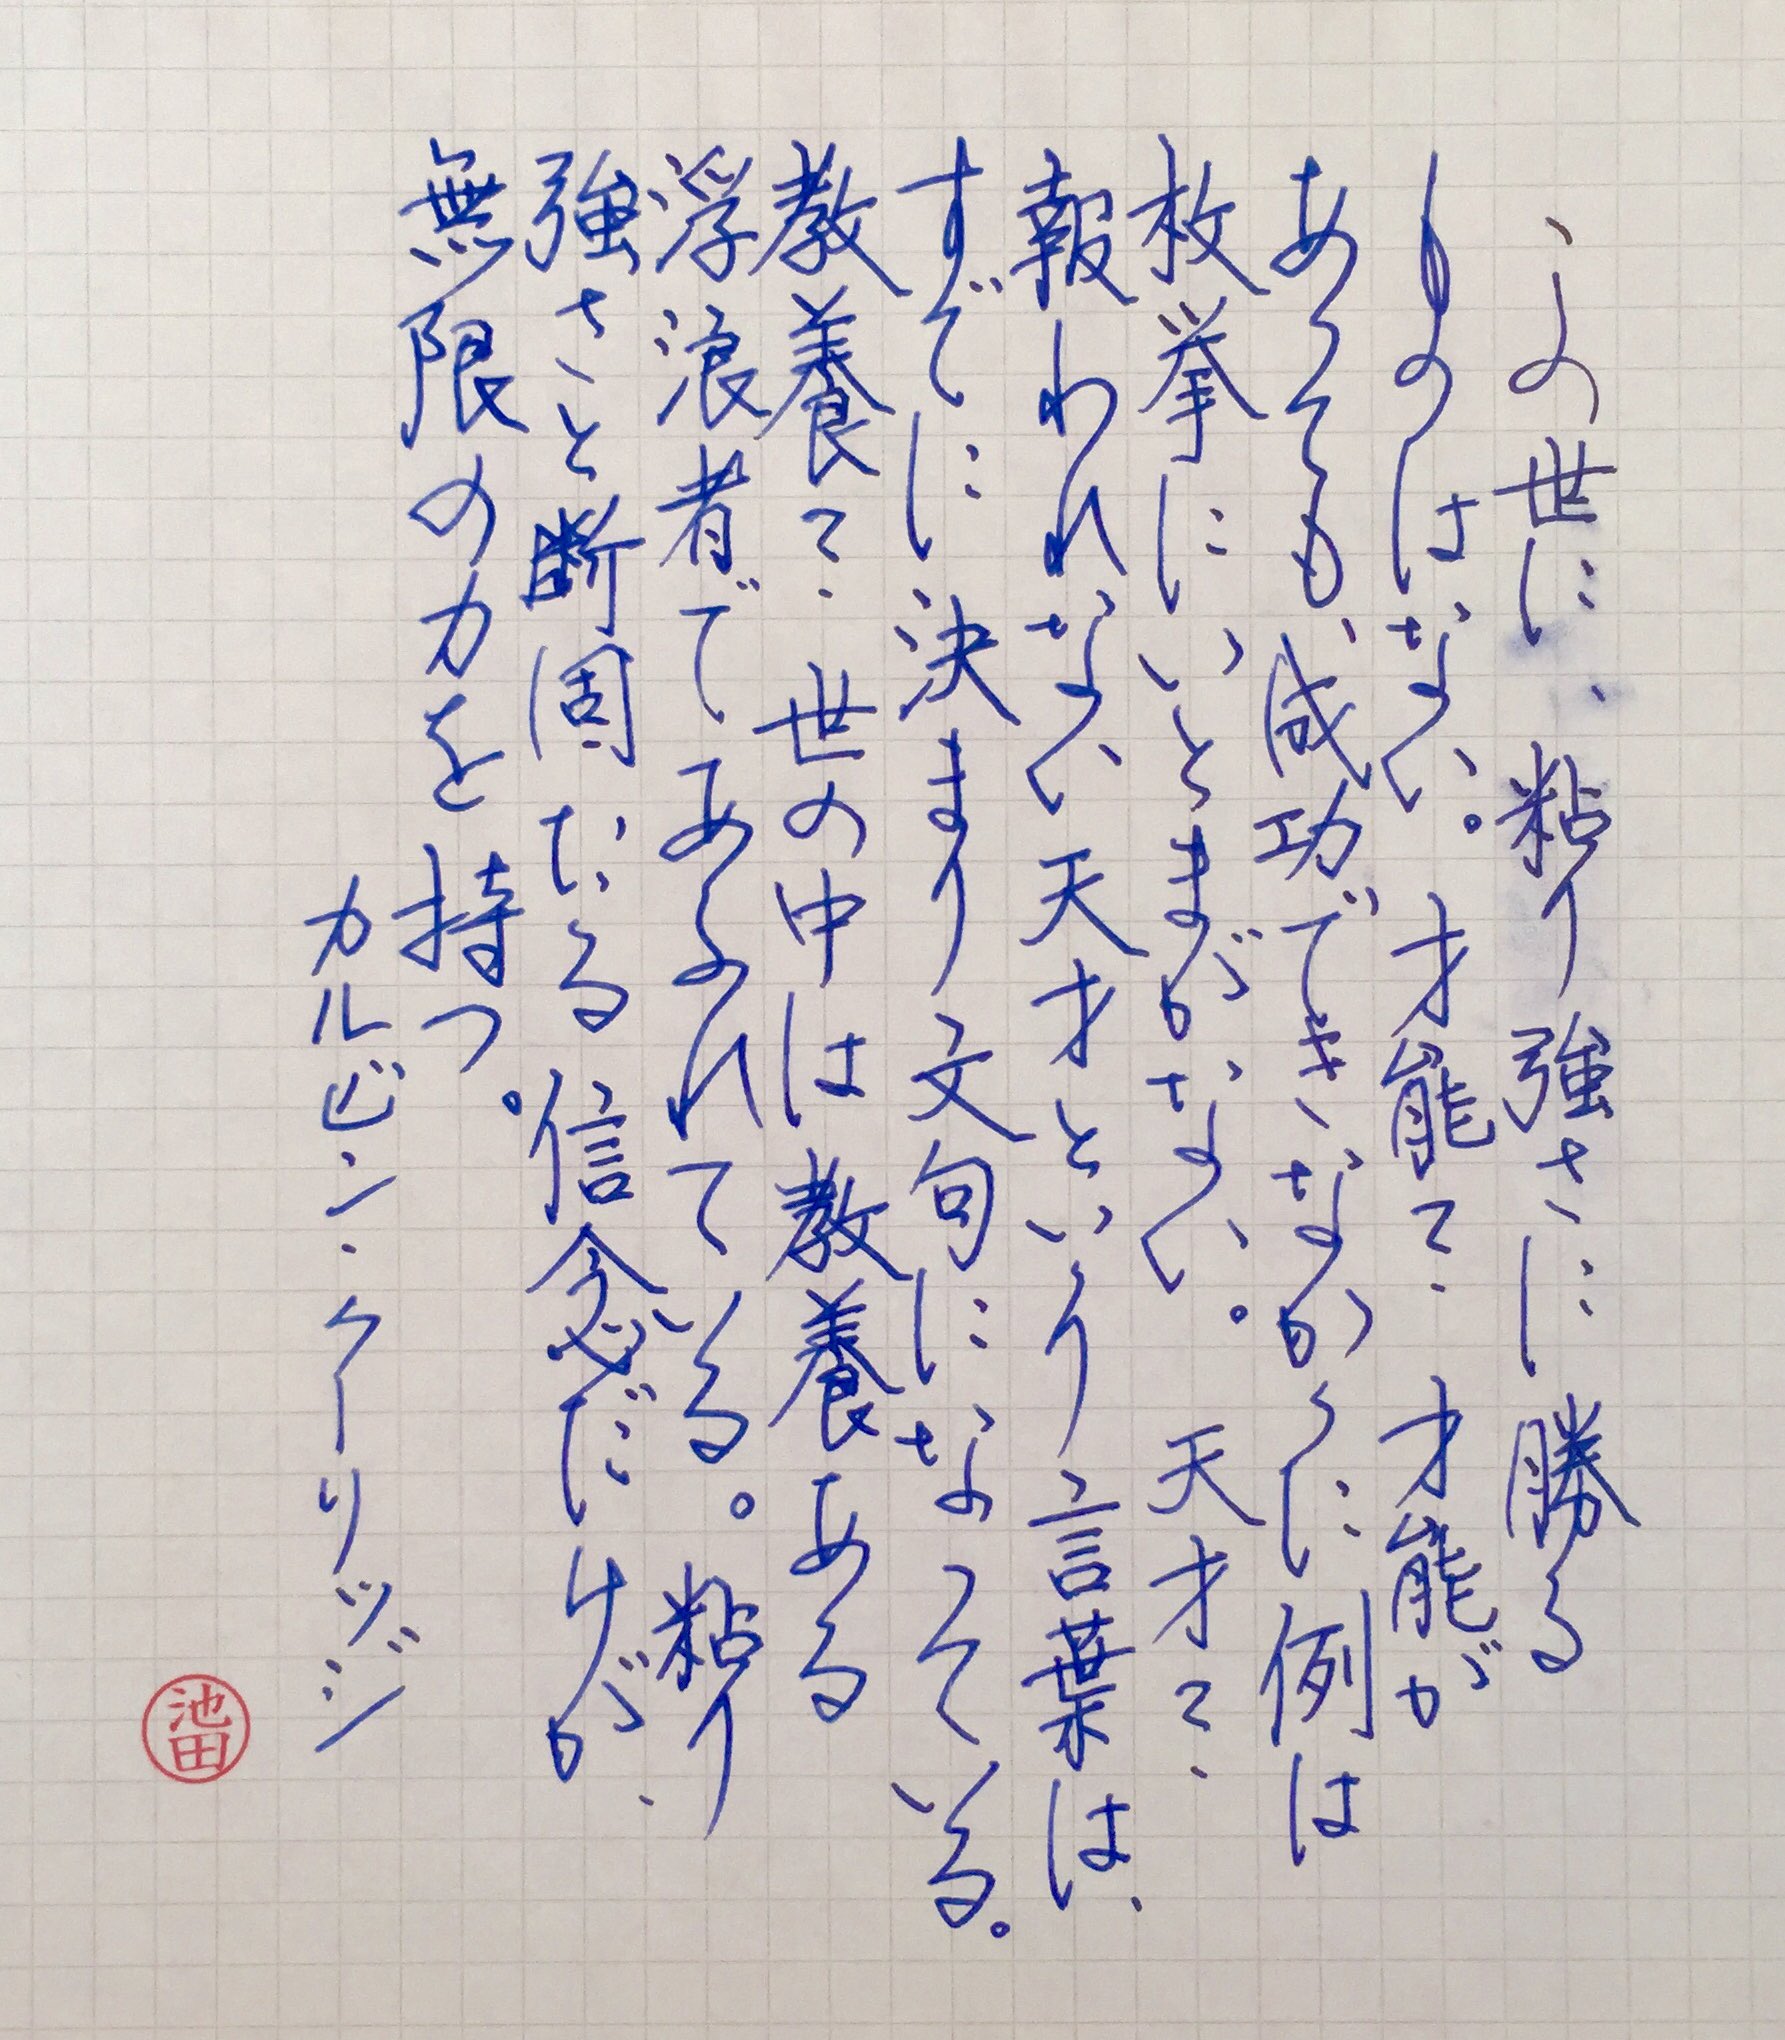 この世に、粘り強さに勝る
ものはない。才能？才能が
あっても、成功できなかった例は
枚挙にいとまがない。天才？
報われない天才という言葉は、
すでに決まり文句になっている。
教養？世の中は教養ある
浮浪者であふれている。粘り
強さと断固たる信念だけが、
無限の力を持つ。
カルビン・クーリッジ
池田